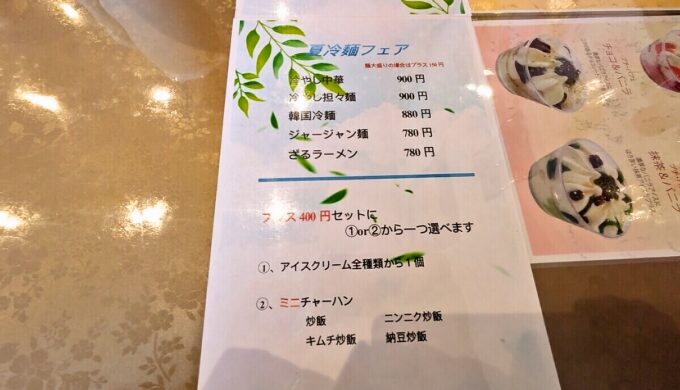 夏冷麺フェア
麺大盛りの場合はプラス150円
冷やし中華 900円
冷やし担々麺 900円
韓国冷麺 880円
ジャージャン麺 780円
ざるラーメン 780円
プラス400円セットに
①or②から一つ選べます
①、アイスクリーム全種類から1個
②、ミニチャーハン
炒飯 ニンニク炒飯
キムチ炒飯 納豆炒飯
チョコ&バニラ
抹茶&バニラ